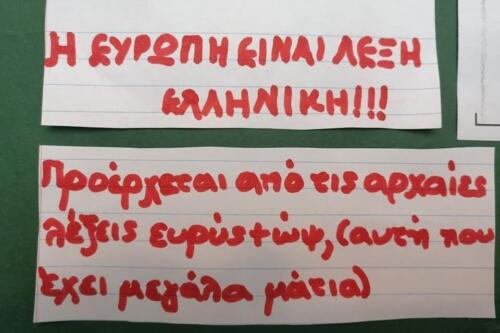 Η ΕΥΡΩΠΗ ΕΙΝΑΙ ΛΕΞΗ
ΕΛΛΗΝΙΚΗ!!!
Προέρχεται από τις αρχαίες
λέξεις ευρύς+ώψ, (αυτή που
έχει μεγάλα μάτια)